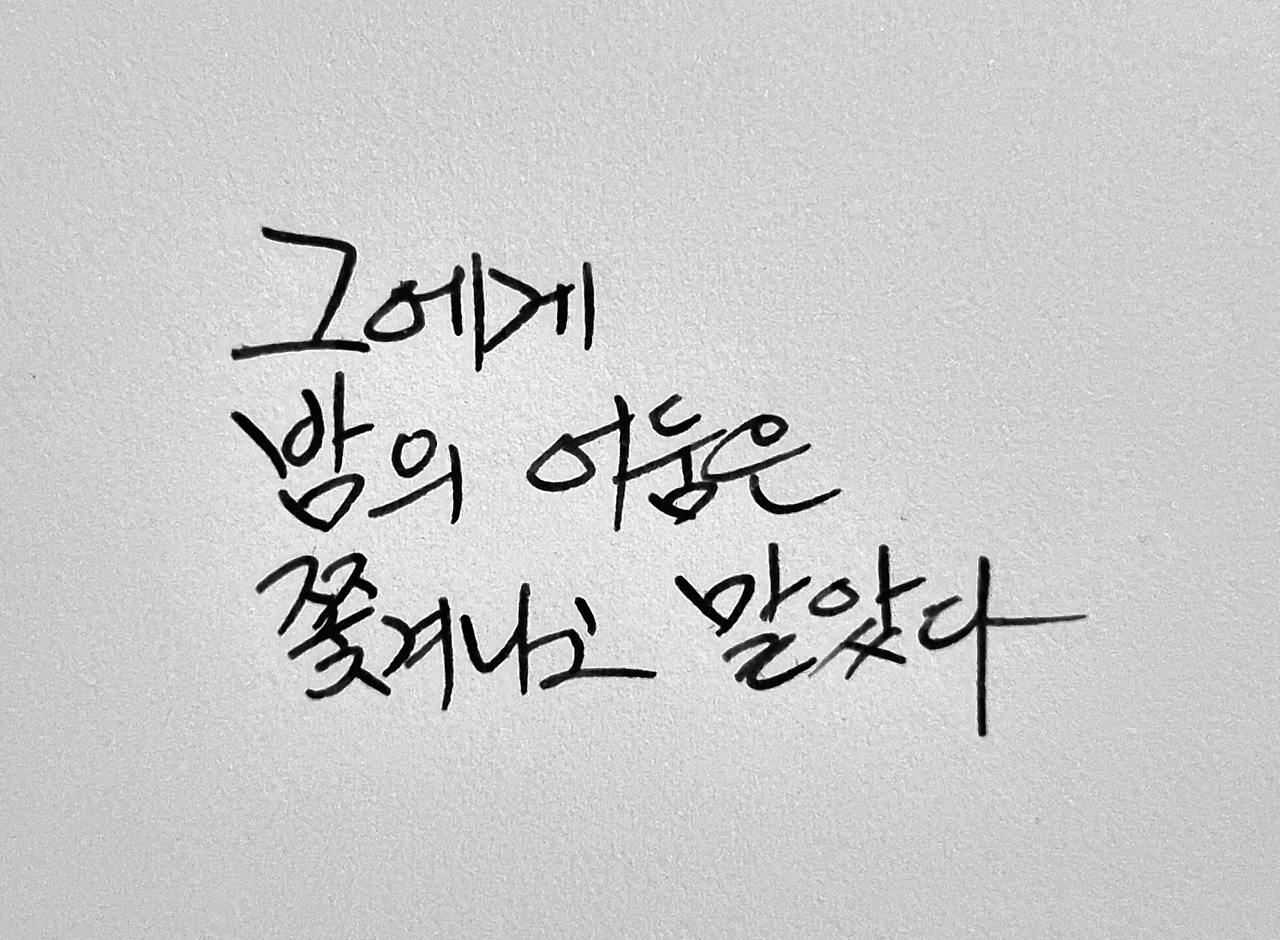 그에게
밤의 어둠은
쫓겨나고 말았다